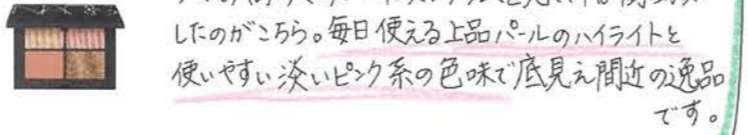 したのがこちら。毎日使える上品パールのハイライトと
使いやすい淡いピンク系の色味で底見え間近の逸品
です。